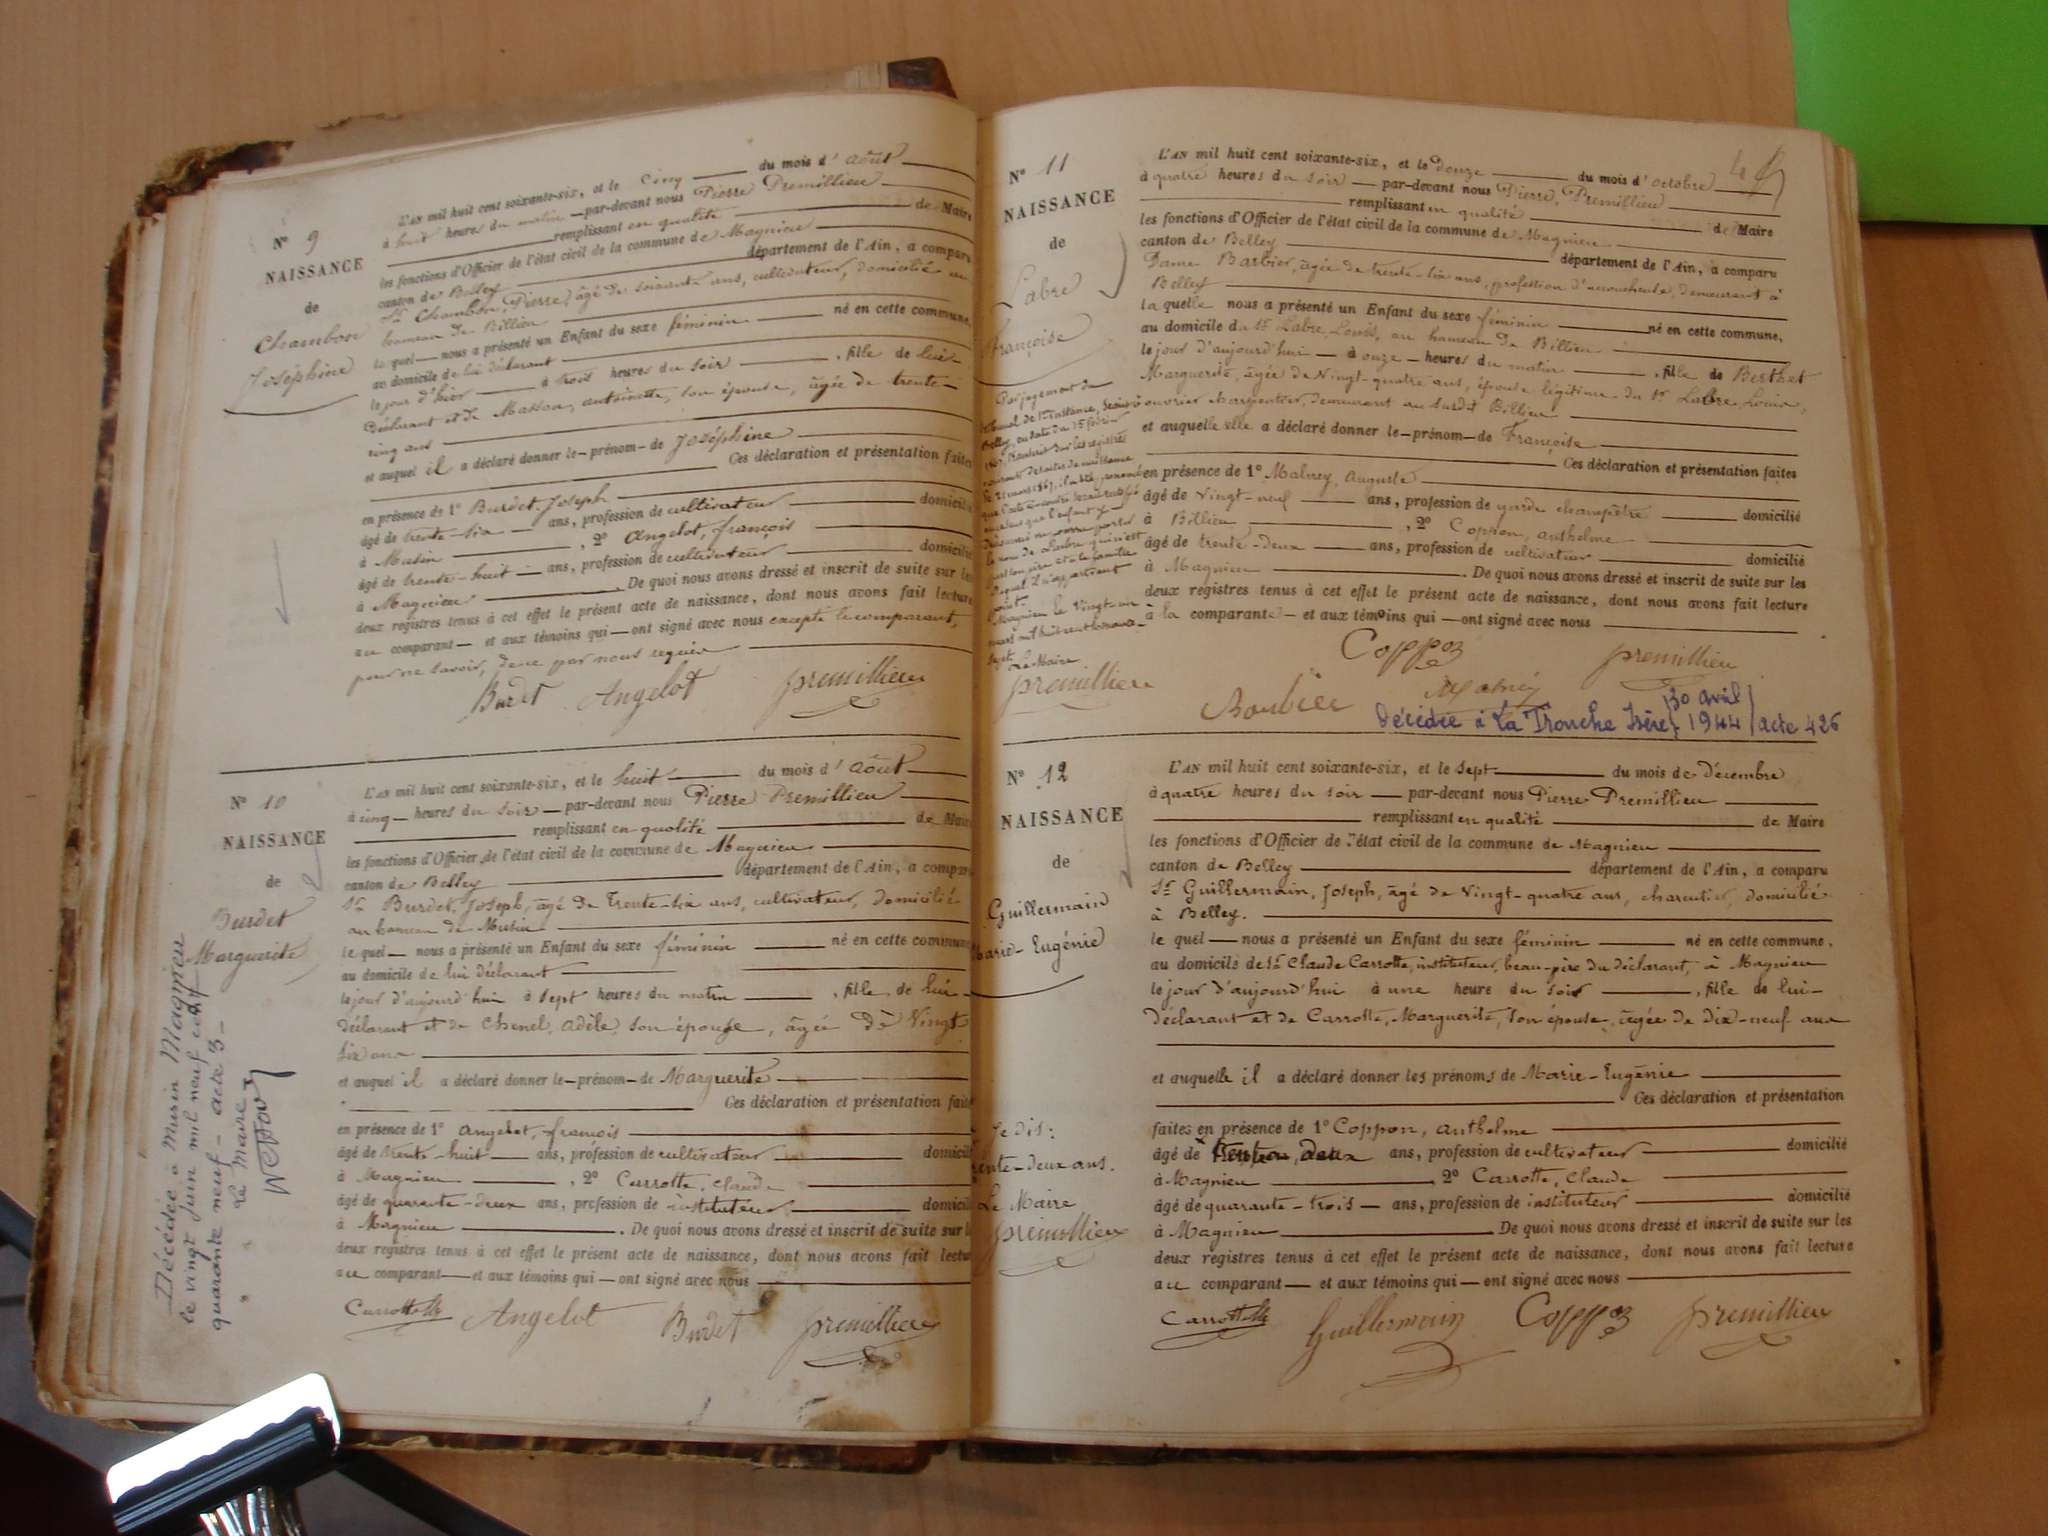 N° 9
NAISSANCE
de
Chambon
Joséphine
L'AN mil huit cent soixante-six, et le cinq du mois d'août
à huit heures du matin par-devant nous Pierre Premillieu
remplissant en qualité de Maire
les fonctions d'Officier de l'état civil de la commune de Magnieu
canton de Belley département de l'Ain, a comparu
Sr Chambon, Pierre, âgé de soixante ans, cultivateur, domicilié au
hameau de Billieu
le quel nous a présenté un Enfant du sexe féminin né en cette commune,
au domicile de lui déclarant
le jour d'hier à trois heures du soir, fille de lui
déclarant et de Masson, antoinette, son épouse, âgée de trente-
cinq ans
et auquel il a déclaré donner le prénom de Joséphine
Ces déclaration et présentation faites
en présence de 1° Burdet, Joseph
âgé de trente-six ans, profession de cultivateur domicilié
à Musin, 2° Angelot, françois
âgé de trente-huit ans, profession de cultivateur domicilié
à Magnieu. De quoi nous avons dressé et inscrit de suite sur les
deux registres tenus à cet effet le présent acte de naissance, dont nous avons fait lecture
au comparant et aux témoins qui ont signé avec nous excepté le comparant,
pour ne savoir, de ce par nous requis
Burdet Angelot Premillieu
N° 10
NAISSANCE
de
Burdet
Marguerite
Décédée à Musin Magnieu
le vingt juin mil neuf cent
quarante neuf - acte 3 -
Le Maire
L'AN mil huit cent soixante-six, et le huit du mois d'août
à cinq heures du soir par-devant nous Pierre Premillieu
remplissant en qualité de Maire
les fonctions d'Officier de l'état civil de la commune de Magnieu
canton de Belley département de l'Ain, a comparu
Sr Burdet, Joseph, âgé de trente-six ans, cultivateur, domicilié
au hameau de Musin
le quel nous a présenté un Enfant du sexe féminin né en cette commune
au domicile de lui déclarant
le jour d'aujourd'hui à sept heures du matin, fille de lui
déclarant et de Chenel, adèle son épouse, âgée de Vingt
six ans
et auquel il a déclaré donner le prénom de Marguerite
Ces déclaration et présentation faites
en présence de 1° angelot, françois
âgé de trente-huit ans, profession de cultivateur domicilié
à Magnieu, 2° Carrotte, claude
âgé de quarante-deux ans, profession de instituteur, domicilié
à Magnieu. De quoi nous avons dressé et inscrit de suite sur les
deux registres tenus à cet effet le présent acte de naissance, dont nous avons fait lecture
au comparant et aux témoins qui ont signé avec nous
Carrotte Angelot Burdet Premillieu
N° 11
NAISSANCE
de
Labre
Françoise
Par jugement du
tribunal de 1re instance, séant à
Belley, en date du 15
Magnieu le vingt-un
mars mil huit cent soixante-
sept
Le Maire
Premillieu
L'AN mil huit cent soixante-six, et le douze du mois d'octobre
à quatre heures du soir par-devant nous Pierre, Premillieu
remplissant en qualité de Maire
les fonctions d'Officier de l'état civil de la commune de Magnieu
canton de Belley département de l'Ain, a comparu
Dame Barbier, âgée de trente-six ans, profession d'accoucheuse, demeurant à
Belley
la quelle nous a présenté un Enfant du sexe féminin né en cette commune,
au domicile du Sr Labre, Louis, au hameau de Billieu
le jour d'aujourd'hui à onze heures du matin, fille de Berthet
Marguerite, âgée de vingt-quatre ans, épouse légitime du Sr Labre, Louis,
ouvrier charpentier, demeurant au susdit Billieu
et auquelle elle a déclaré donner le prénom de Françoise
Ces déclaration et présentation faites
en présence de 1° Malney, Auguste
âgé de vingt-neuf ans, profession de garde champêtre domicilié
à Billieu, 2° Coppon, anthelme
âgé de trente-deux ans, profession de cultivateur domicilié
à Magnieu. De quoi nous avons dressé et inscrit de suite sur les
deux registres tenus à cet effet le présent acte de naissance, dont nous avons fait lecture
à la comparante et aux témoins qui ont signé avec nous
Coppon Premillieu
Décédée à La Tronche Isère 30 avril 1944 acte 426
N° 12
NAISSANCE
de
Guillermain
Marie-Eugénie
Je dis:
trente-deux ans.
Le Maire
Premillieu
L'AN mil huit cent soixante-six, et le sept du mois de Décembre
à quatre heures du soir par-devant nous Pierre Premillieu
remplissant en qualité de Maire
les fonctions d'Officier de l'état civil de la commune de Magnieu
canton de Belley département de l'Ain, a comparu
Sr Guillermain, Joseph, âgé de Vingt-quatre ans, charcutier, domicilié
à Belley.
le quel nous a présenté un Enfant du sexe féminin né en cette commune,
au domicile de Sr Claude Carrotte, instituteur, beau-père du déclarant, à Magnieu
le jour d'aujourd'hui à une heure du soir, fille de lui-
déclarant et de Carrotte, Marguerite, son épouse, âgée de dix-neuf ans
et auquelle il a déclaré donner les prénoms de Marie-Eugénie
Ces déclaration et présentation
faites en présence de 1° Coppon, anthelme
âgé de ans, profession de cultivateur domicilié
à Magnieu, 2° Carrotte, Claude
âgé de quarante-trois ans, profession de instituteur domicilié
à Magnieu. De quoi nous avons dressé et inscrit de suite sur les
deux registres tenus à cet effet le présent acte de naissance, dont nous avons fait lecture
au comparant et aux témoins qui ont signé avec nous
Carrotte Guillermain Coppon Premillieu